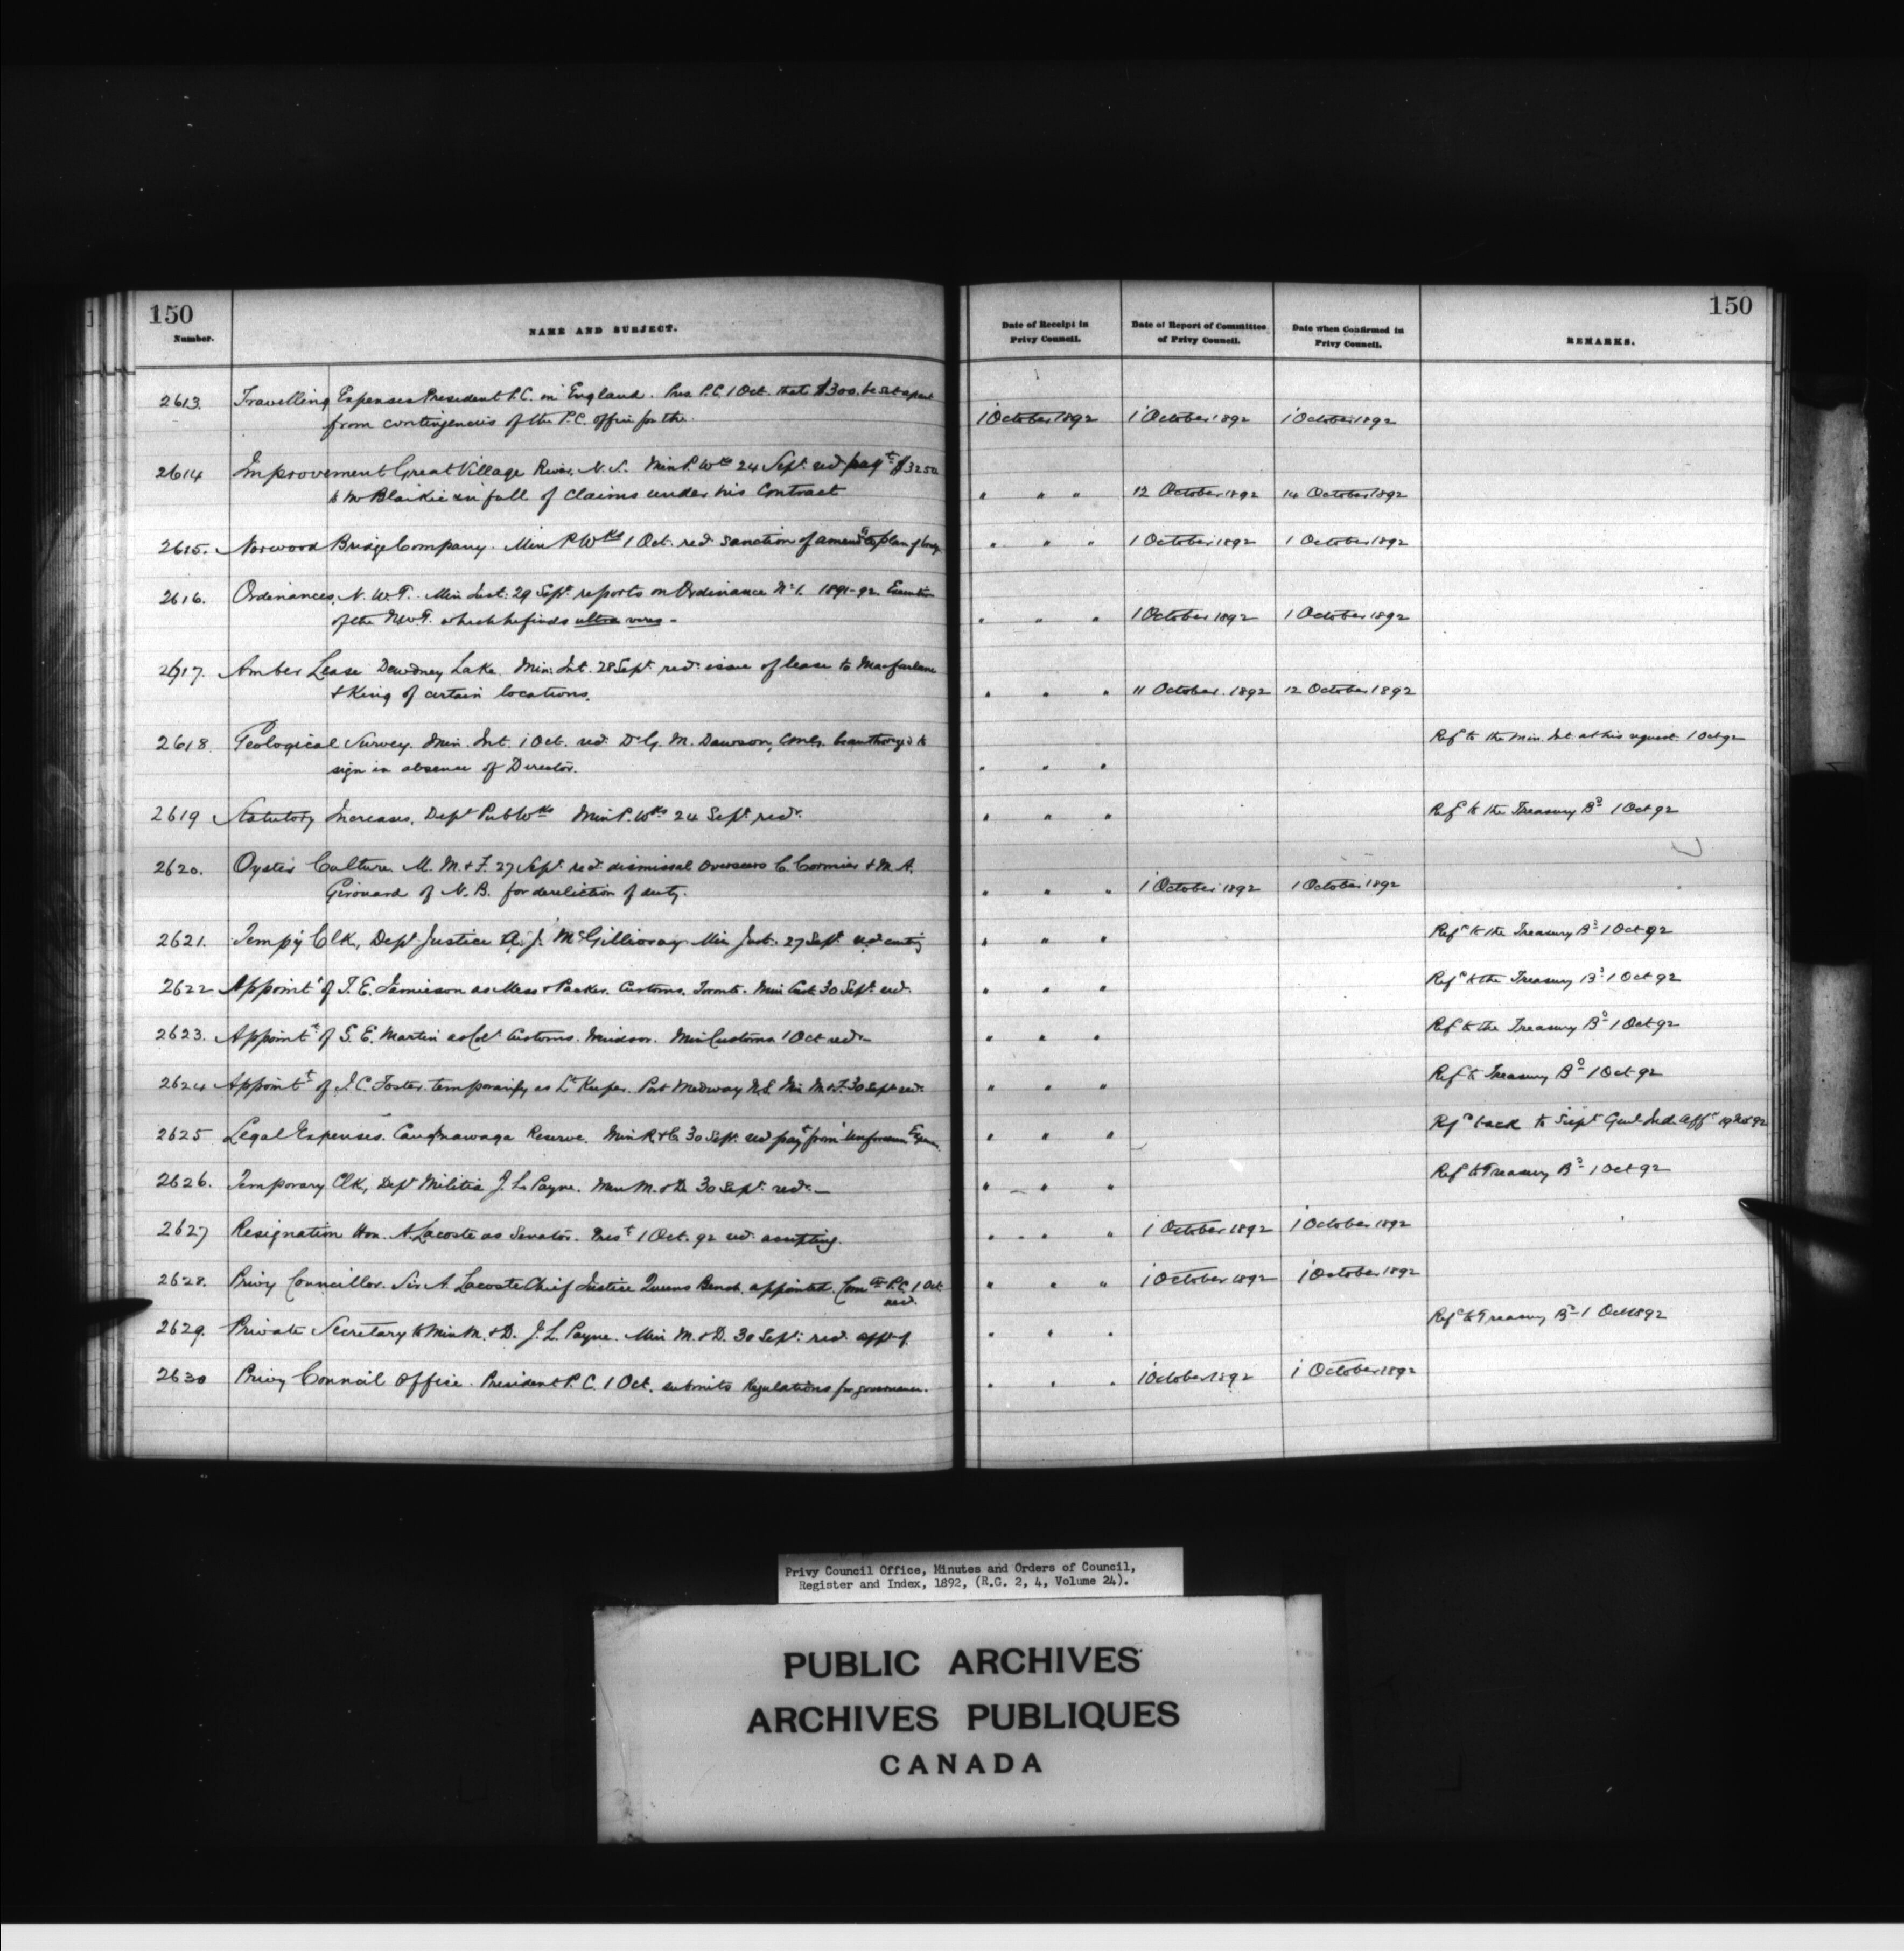 150
150
Number.
NAME AND SUBJECT.
Date of Receipt in Privy Council.
Date of Report of Committee of Privy Council.
Date when Confirmed in Privy Council.
REMARKS.
2613. Travelling Expenses President P.C. in England. Pres. P.C. 1 Oct. that $300. be set apart
from contingencies of the P.C. office for the. 1 October 1892 1 October 1892 1 October 1892
2614 Improvement Great Village River. N.S. Min P. Wks 24 Sept. recd payt $3250
to Mr Blaikie in full of claims under his Contract " " " 12 October 1892 14 October 1892
2615. Norwood Bridge Company. Min P Wks 1 Oct. recd sanction of plan of " " " 1 October 1892 1 October 1892
2616. Ordinances, N.W.T. Min Int. 29 Sept. reports on Ordinance No 1. 1891-92
of the N.W.T. which he finds ultra vires - " " " 1 October 1892 1 October 1892
2617. Amber Lease Dewdney Lake. Min. Int. 28 Sept. recd issue of lease to Macfarlane
& King of certain locations. " " " 11 October. 1892 12 October 1892
2618 Geological Survey. Min. Int. 1 Oct. recd Dr G. M. Dawson, be authorized to Refd to the Min. Int. at his request. 1 Oct 92
sign in absence of Director. " " "
2619 Statutory Increases, Dept Pub Wks Min P. Wks 24 Sept. recd. " " " Refd to the Treasury Bd 1 Oct 92
2620. Oyster Culture M. M. & F. 27 Sept. recd dismissal Overseers C. Cormier & M. A.
Girouard of N. B. for dereliction of duty. " " " 1 October 1892 1 October 1892
2621. Tempy Clk, Dept Justice A. J. McGillivray Min Just. 27 Sept. recd " " " Refd to the Treasury Bd 1 Oct 92
2622 Appoint of T. E. Jamieson as Mess & Packer. Customs. Toronto. Min Cust 30 Sept. recd. " " " Refd to the Treasury Bd 1 Oct 92
2623. Appointt of S. E. Martin as Colr Customs. Windsor. Min Customs 1 Oct recd - " " " Refd to the Treasury Bd 1 Oct 92
2624 Appointt of J. C. Foster temporarily as Lt Keeper. Port Medway N.S. Min M. & F. 30 Sept recd. " " " Refd to Treasury Bd 1 Oct 92
2625 Legal Expenses. Caughnawaga Reserve. Min R & C 30 Sept. recd payt from Unforseen " " " Refd back to Supt Genl Ind. Affs 92
2626. Temporary Clk, Dept Militia J. L. Payne. Min M. & D 30 Sept. recd. - " " " Refd to Treasury Bd 1 Oct 92
2627 Resignation Hon. A. Lacoste as Senator. 1 Oct. 92 recd accepting. " " " 1 October 1892 1 October 1892
2628. Privy Councillor. Sir A. Lacoste Chief Justice Queens Bench, appointed. Comee P.C. 1 Oct.
recd. " " " 1 October 1892 1 October 1892
2629. Private Secretary to Min M. & D. J. L. Payne. Min M. & D. 30 Sept. recd. appt of " " " Refd to Treasury Bd 1 Oct 1892
2630 Privy Council Office. President P. C. 1 Oct. submits Regulations for governance. " " " 1 October 1892 1 October 1892
Privy Council Office, Minutes and Orders of Council,
Register and Index, 1892, (R.G. 2, 4, Volume 24).
PUBLIC ARCHIVES
ARCHIVES PUBLIQUES
CANADA